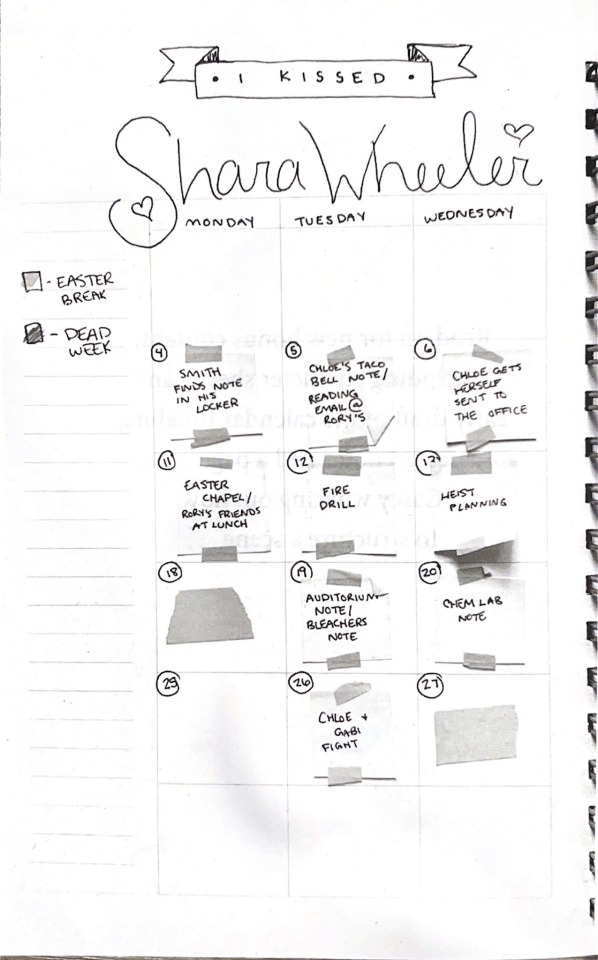 • I KISSED •
Shara Wheeler
MONDAY TUESDAY WEDNESDAY
- EASTER
BREAK
- DEAD
WEEK
4
SMITH
FINDS NOTE
IN HIS
LOCKER
5
CHLOE'S TACO
BELL NOTE/
READING
EMAIL @
RORY'S
6
CHLOE GETS
HERSELF
SENT TO
THE OFFICE
11
EASTER
CHAPEL/
RORY'S FRIENDS
AT LUNCH
12
FIRE
DRILL
13
HEIST
PLANNING
18
19
AUDITORIUM
NOTE/
BLEACHERS
NOTE
20
CHEM LAB
NOTE
25
26
CHLOE +
GABI
FIGHT
27